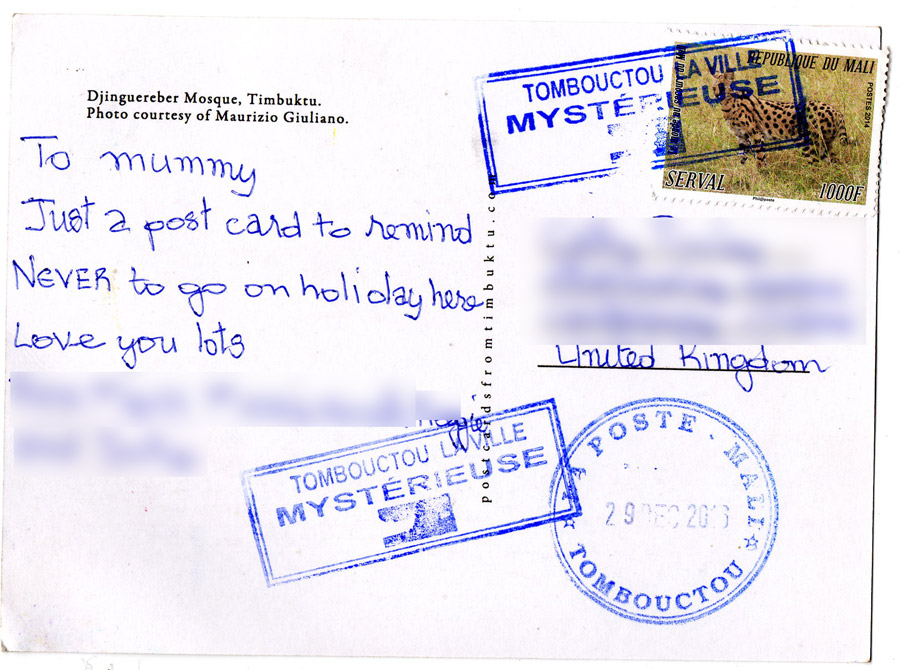 Djinguereber Mosque, Timbuktu.
Photo courtesy of Maurizio Giuliano.
To mummy
Just a post card to remind
NEVER to go on holiday here
Love you lots
postcardsfromtimbuktu.com
TOMBOUCTOU LA VILLE
MYSTÉRIEUSE
RÉPUBLIQUE DU MALI
POSTES 2014
SERVAL
1000F
Philaposte
United Kingdom
TOMBOUCTOU LA VILLE
MYSTÉRIEUSE
LA POSTE · MALI
29 DEC 2016
TOMBOUCTOU